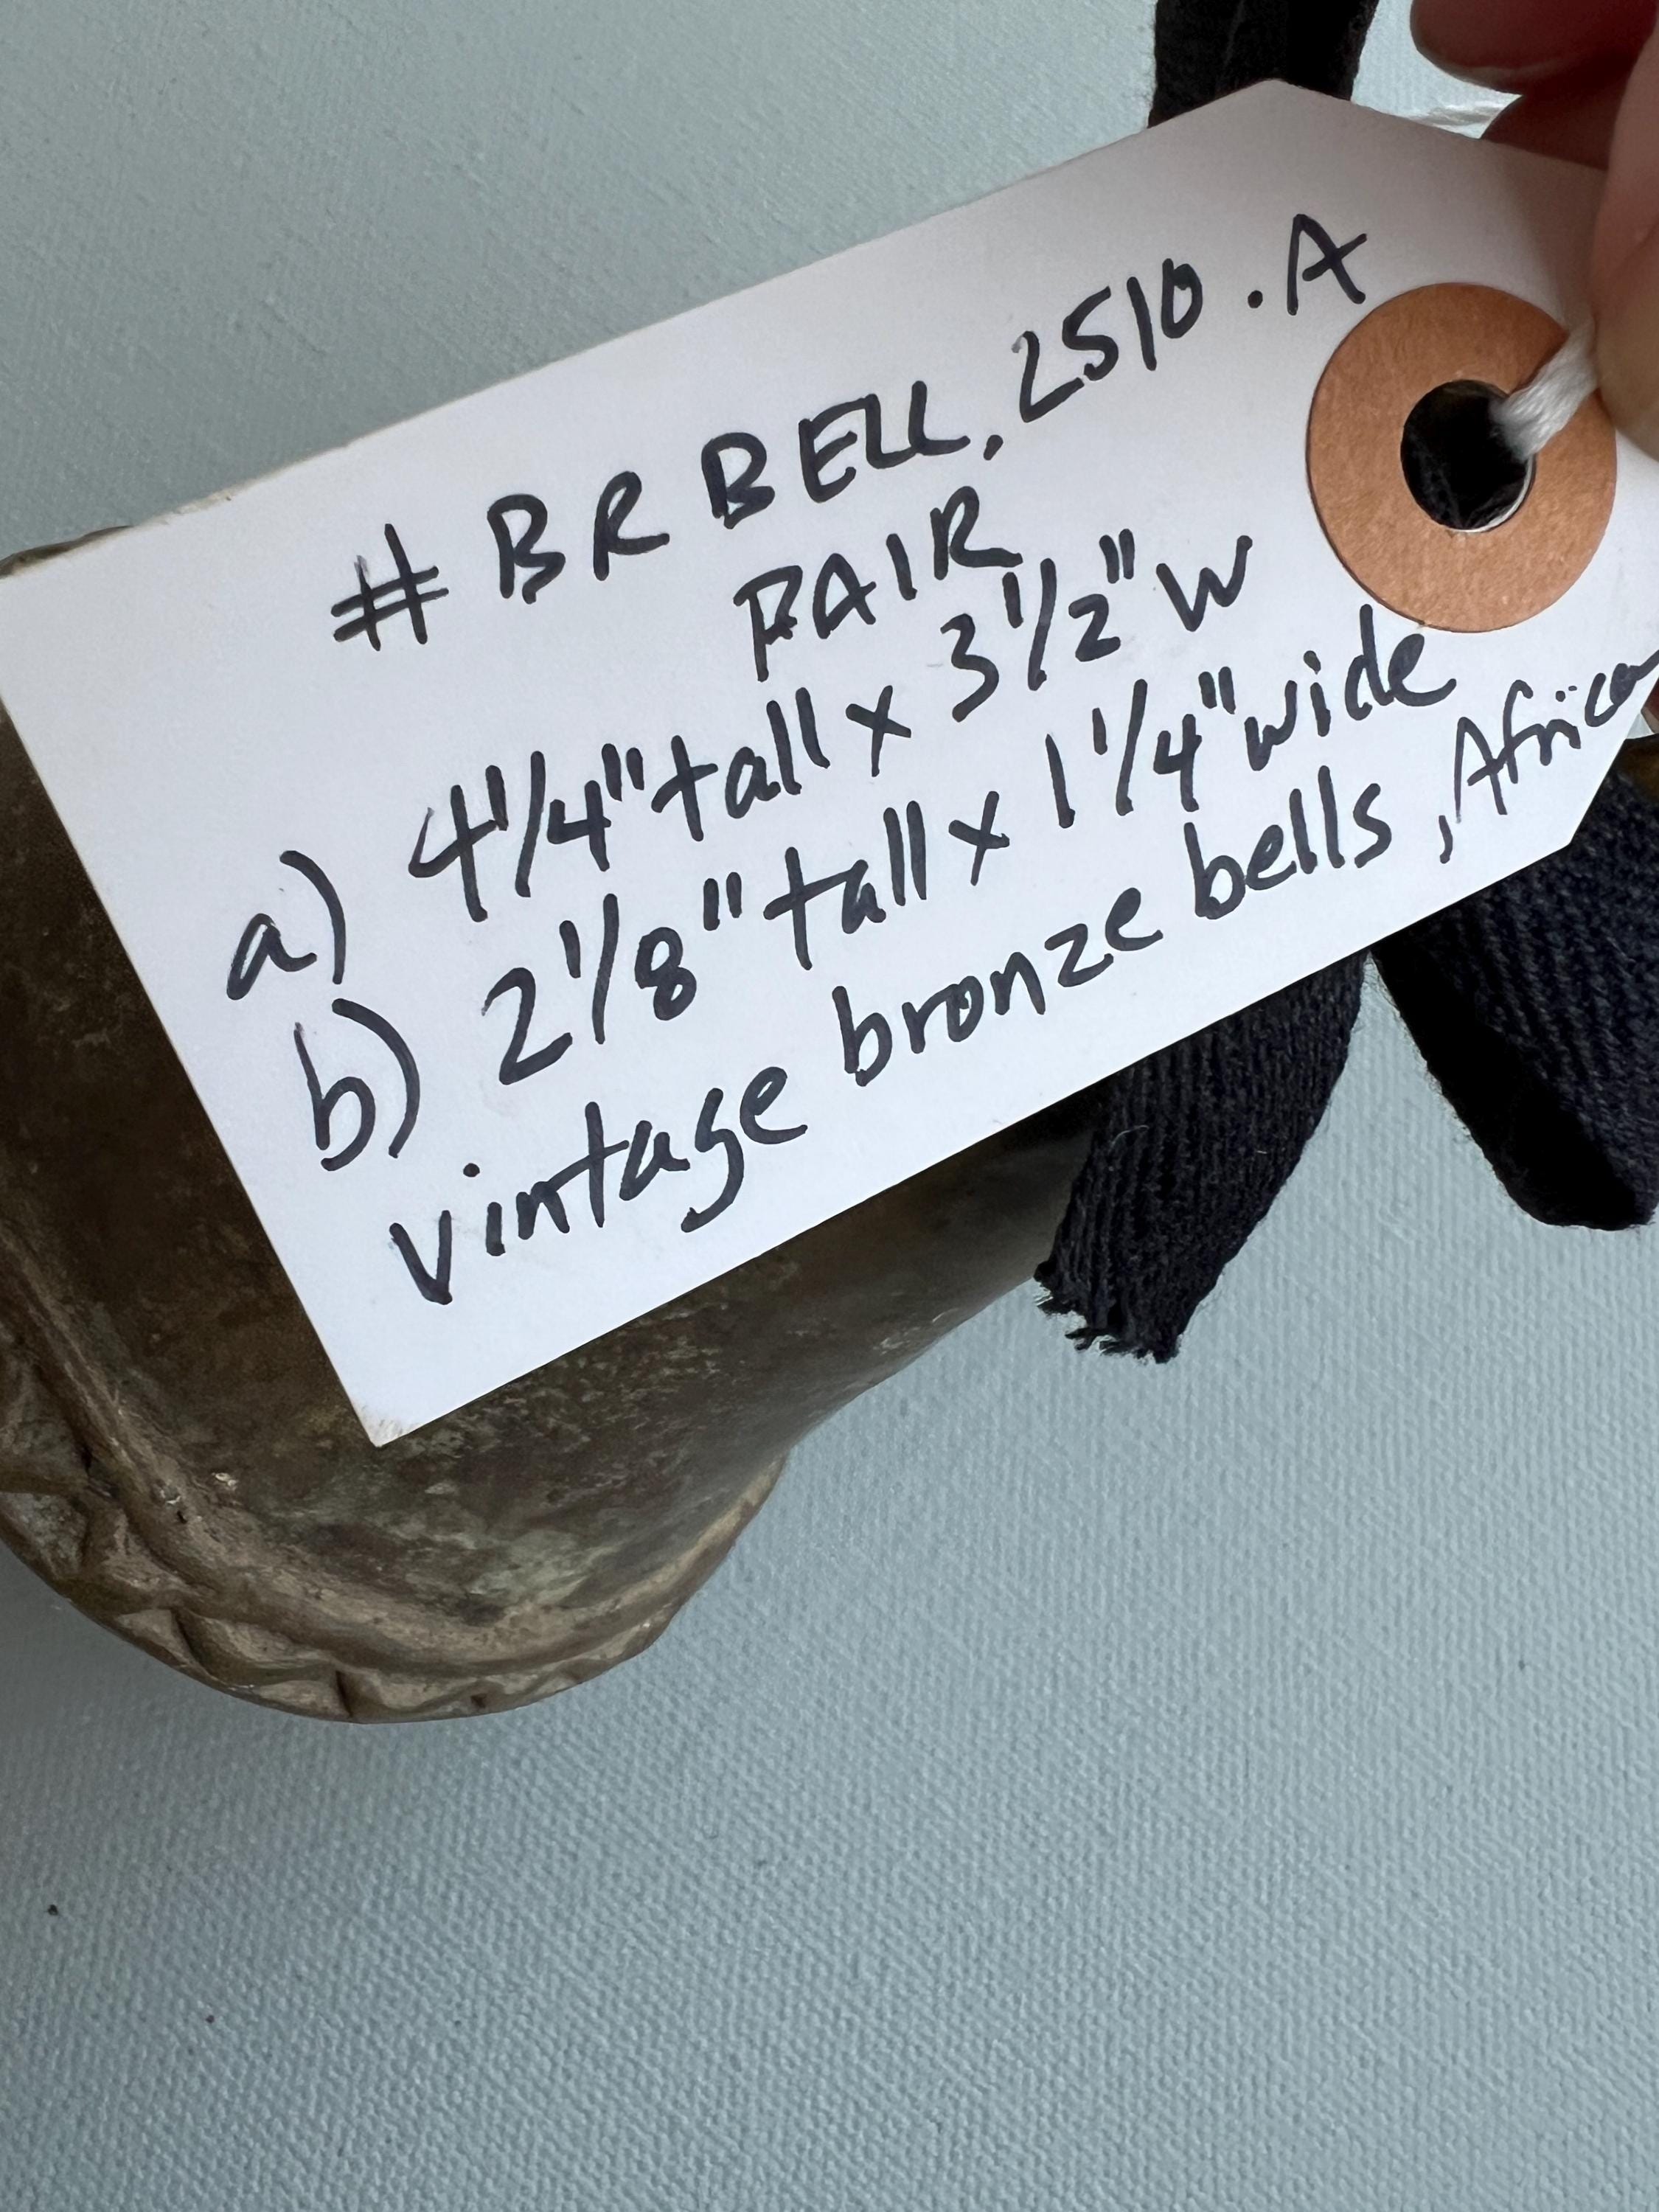 # BR BELL. 2510.A
PAIR
a) 4 1/4" tall x 3 1/2" W
b) 2 1/8" tall x 1 1/4" wide
vintage bronze bells, Africa